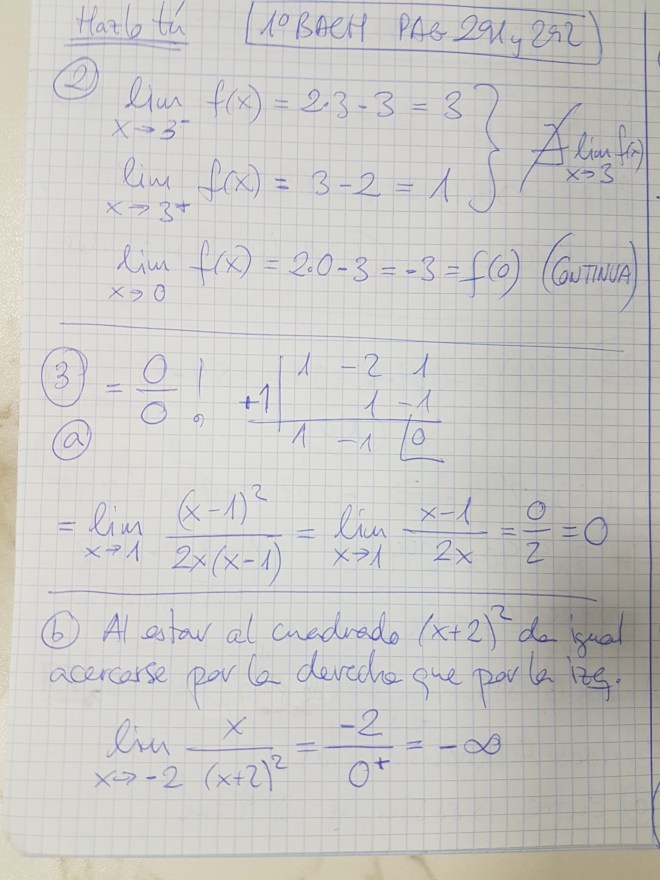 Hazlo tú 1º BACH PAG 291 y 292
② lim f(x) = 2·3 - 3 = 3
x→3⁻
∄ lim f(x)
x→3
lim f(x) = 3 - 2 = 1
x→3⁺
lim f(x) = 2·0 - 3 = -3 = f(0) (CONTINUA)
x→0
③ = 0/0 ! 1 -2 1
+1 1 -1
ⓐ 1 -1 0
= lim (x-1)²/2x(x-1) = lim x-1/2x = 0/2 = 0
x→1 x→1
ⓑ Al estar al cuadrado (x+2)² da igual
acercarse por la derecha que por la izq.
lim x/(x+2)² = -2/0⁺ = -∞
x→-2